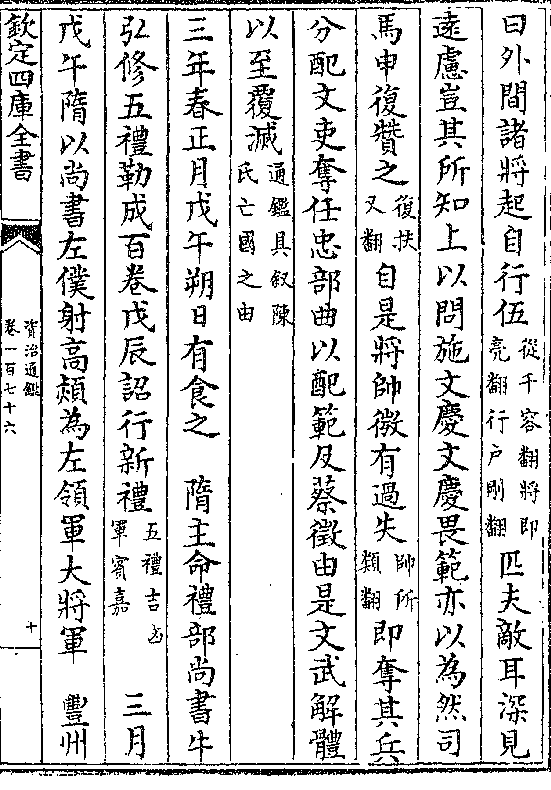 曰外間諸將起自行伍從千容翻將即亮翻行户剛翻匹夫敵耳深見
遠慮豈其所知上以問施文慶文慶畏範亦以為然司
馬申復贊之復扶又翻自是將帥微有過失帥所類翻即奪其兵
分配文吏奪任忠部曲以配範及蔡徵由是文武解體
以至覆滅通鑑具叙陳氏亡國之由
三年春正月戊午朔日有食之 隋主命禮部尚書牛
弘修五禮勒成百卷戊辰詔行新禮五禮吉凶軍賓嘉 三月
戊午隋以尚書左僕射高熲為左領軍大將軍 豐州
欽定四庫全書
資治通鑑
卷一百七十六
十